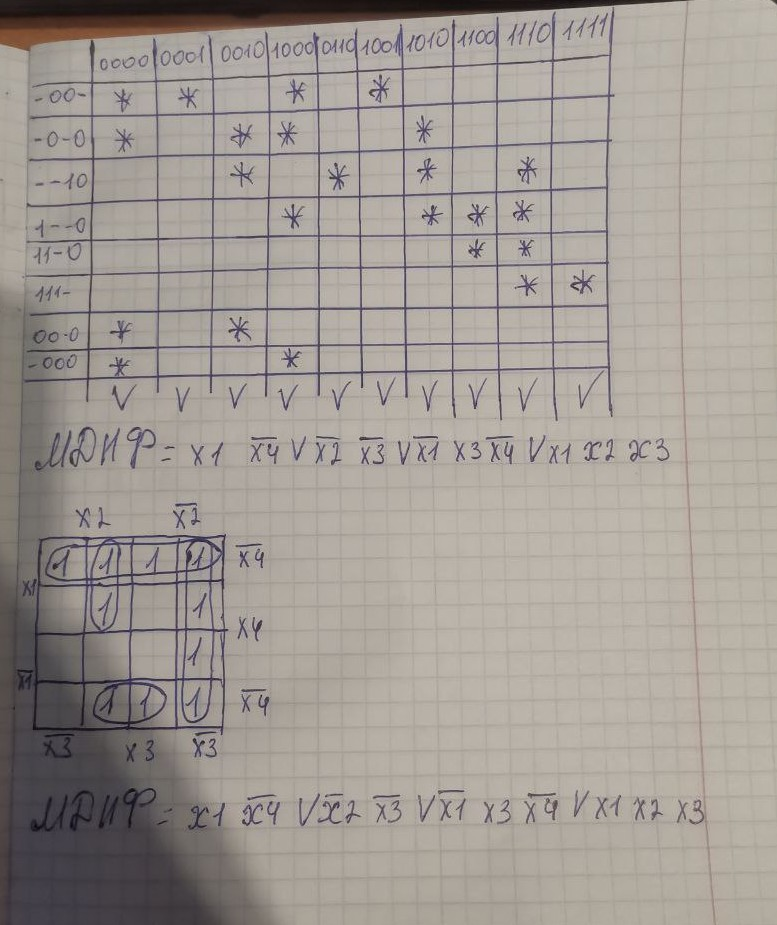 0000 0001 0010 1000 0110 1001 1010 1100 1110 1111
-00- * * * *
-0-0 * * * *
--10 * * * *
1--0 * * * *
11-0 * *
111- * *
00-0 * *
-000 * *
V V V V V V V V V V
МДНФ = x1 x̅4̅ V x̅2̅ x̅3̅ V x̅1̅ x3 x̅4̅ V x1 x2 x3
x2 x̅2̅
x1 1 1 1 1 x̅4̅
1 1 x4
1
x̅1̅ 1 1 1 x̅4̅
x̅3̅ x3 x̅3̅
МДНФ = x1 x̅4̅ V x̅2̅ x̅3̅ V x̅1̅ x3 x̅4̅ V x1 x2 x3